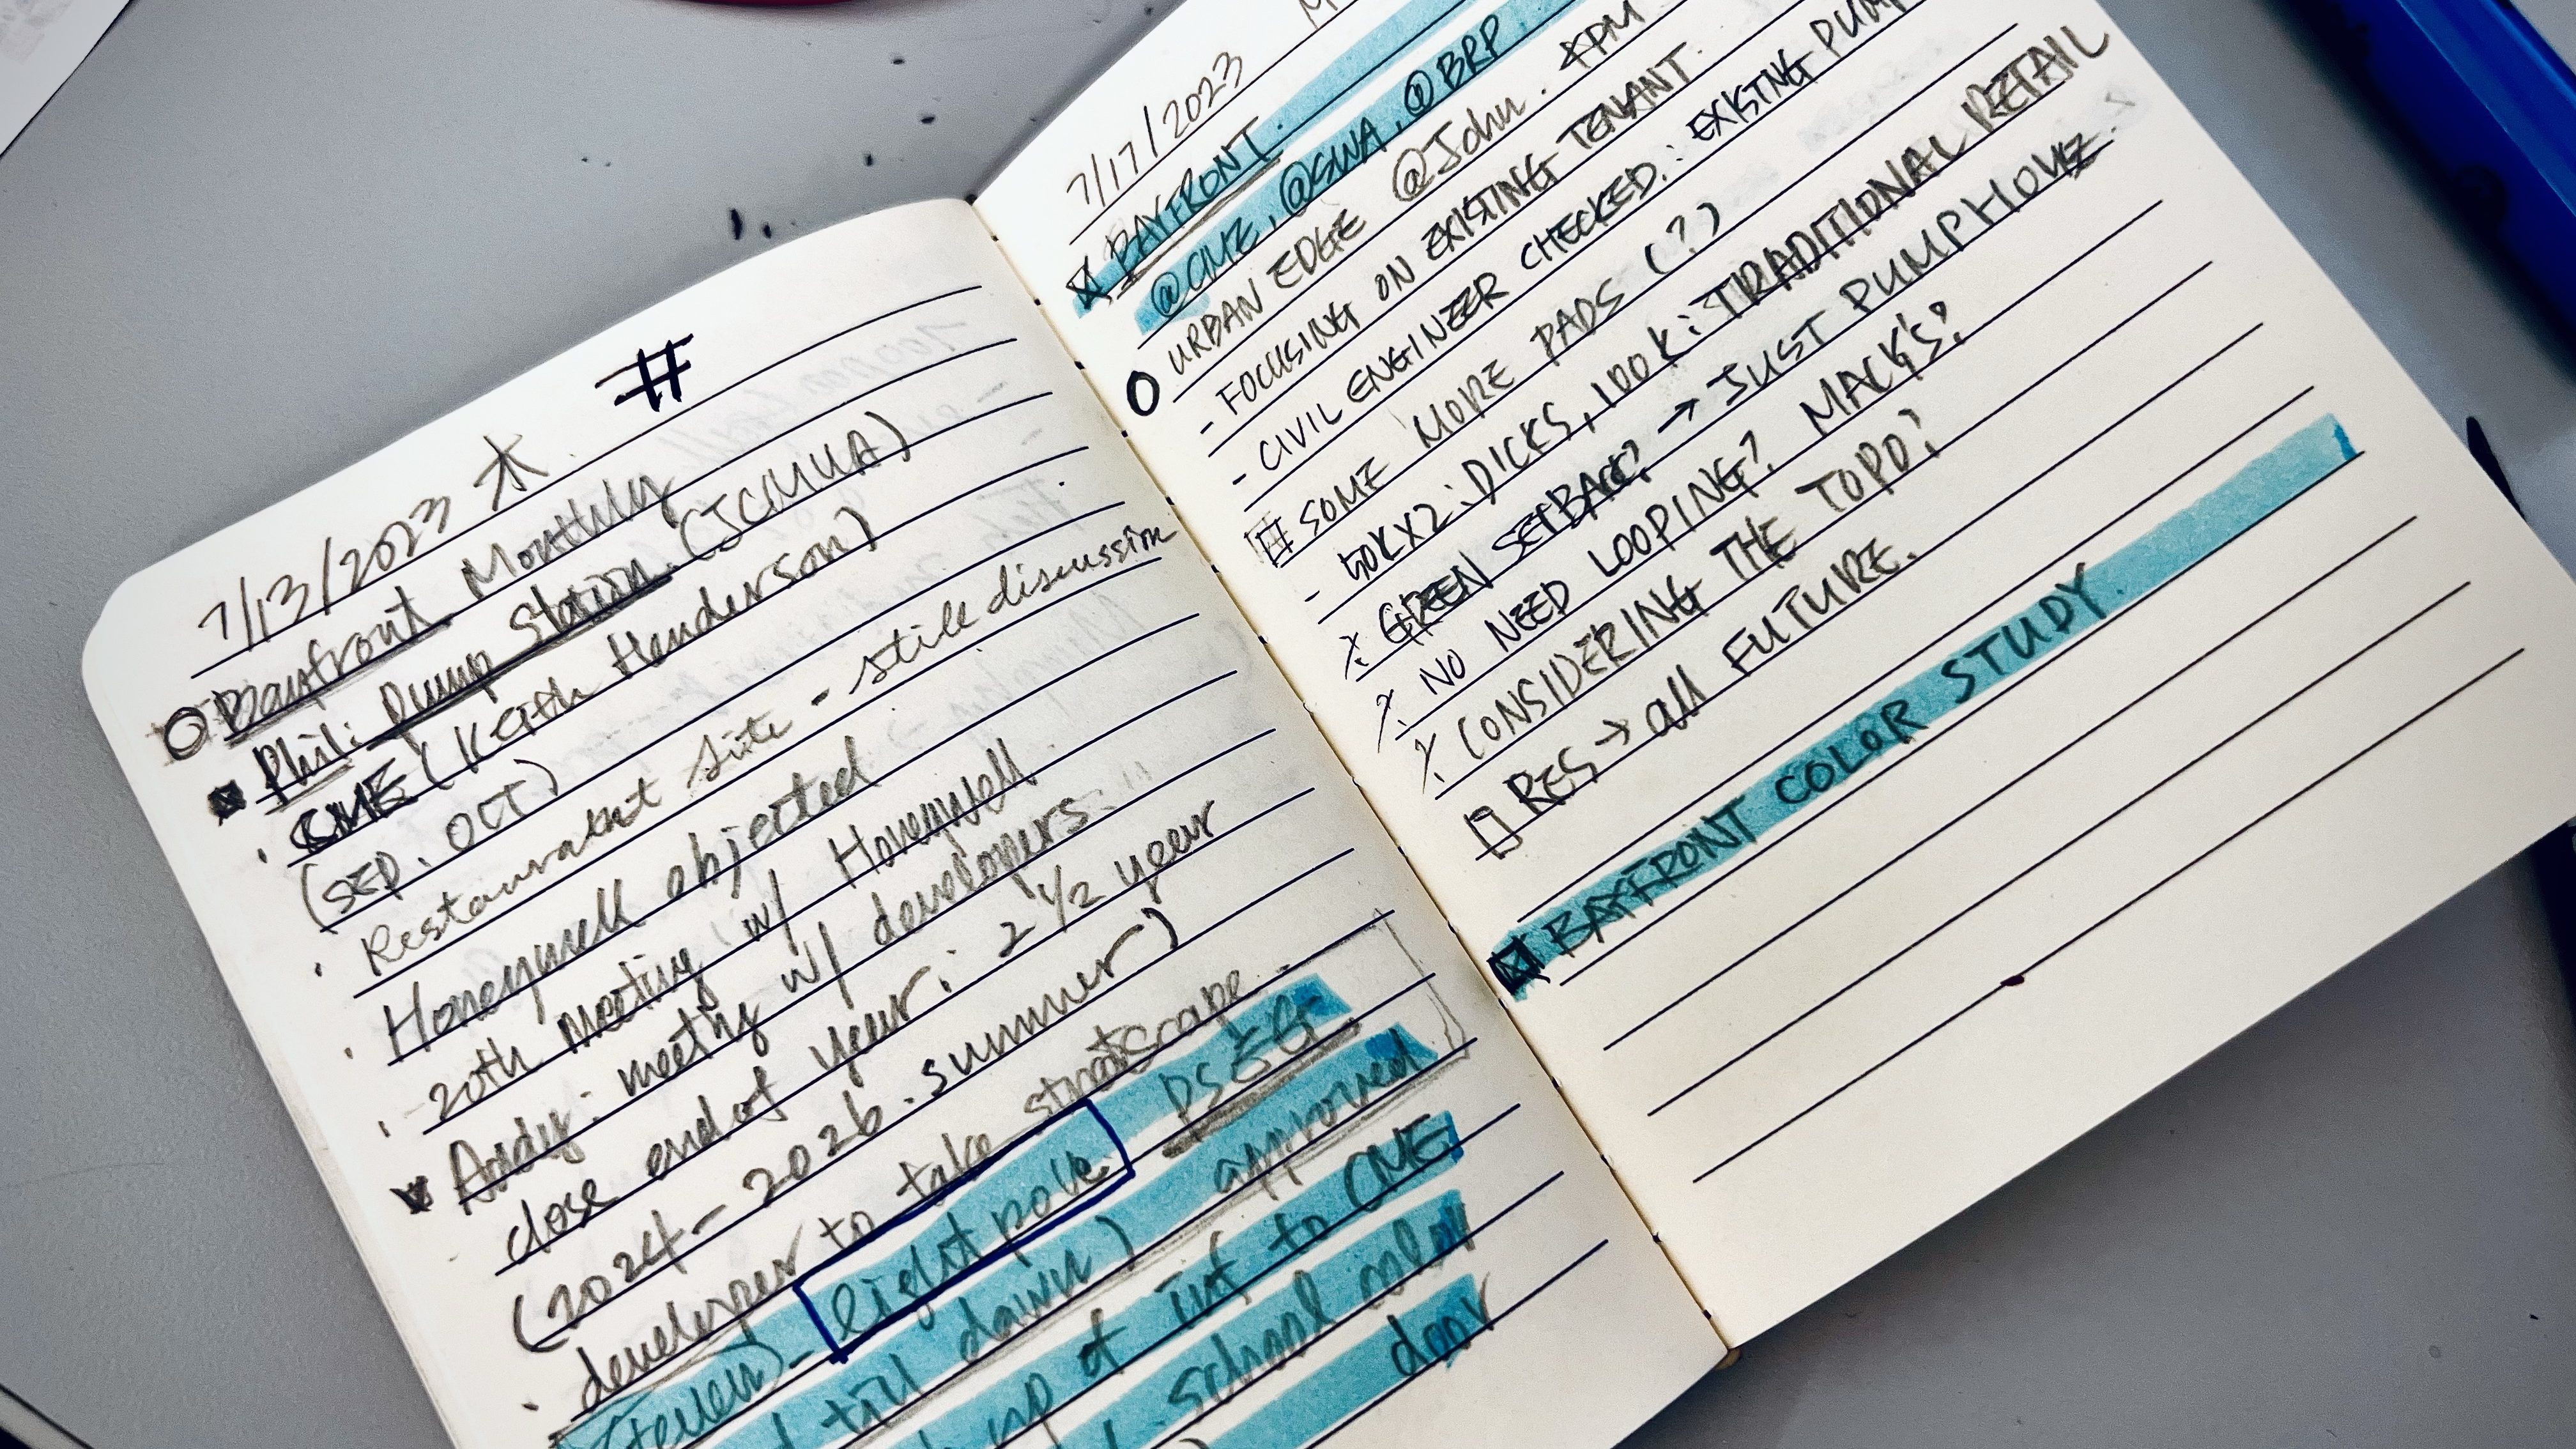 #
7/13/2023 木.
Bayfront Monthly
Phil: Pump Station (JCMUA)
CME (Keith Henderson)
(SEP. OCT)
Restaurant site - still discussion
Honeywell objected
20th meeting w/ Honeywell.
Andy: meeting w/ developers
close end of year: 2 1/2 year
(2024-2026.summer)
developer to take streetscape.
light pole PSEG
till dawn) approved
up of inf to CME
school color
door
7/17/2023 M
BAYFRONT.
@CME, @SWA, @BRP.
URBAN EDGE @John. 4PM
- FOCUSING ON EXISTING TENANT.
- CIVIL ENGINEER CHECKED: EXISTING PUMP
# SOME MORE PADS (?)
- 50KX2: DICKS, 100K: TRADITIONAL RETAIL
GREEN SETBACK? → JUST PUMPHOUSE.
NO NEED LOOPING? MACK'S?
CONSIDERING THE TOPO?
RES → all FUTURE.
BAYFRONT COLOR STUDY.